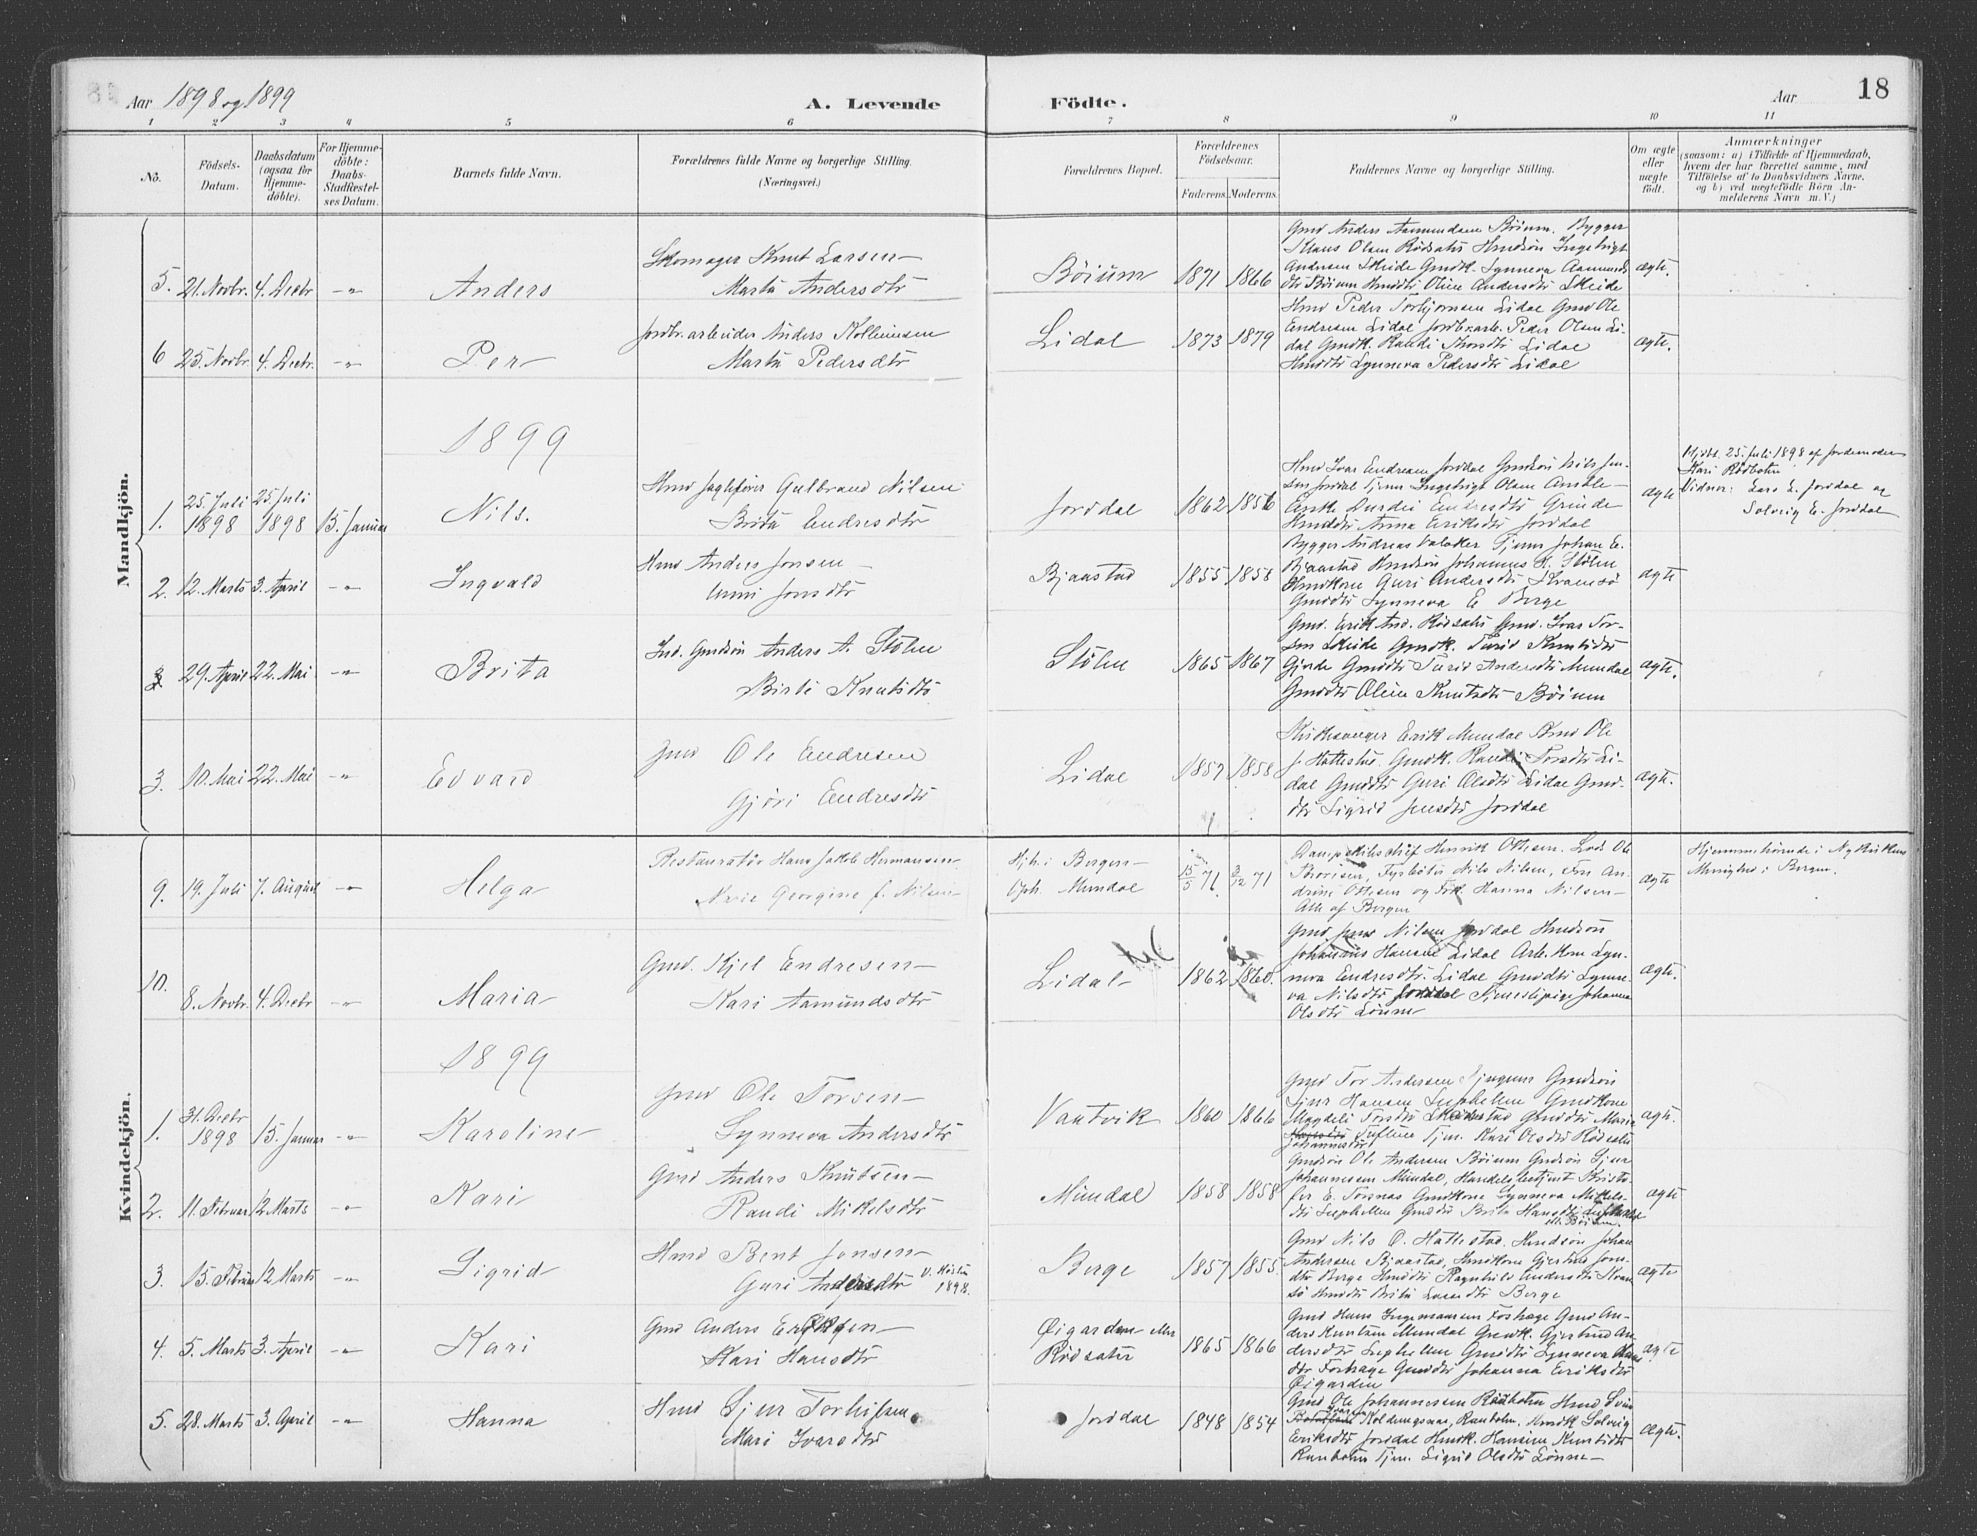 Aar 1898 og 1899
A. Levende Födte.
Aar
18
1 2 3 4 5 6 7 8 9 10 11
No.
Födsels-Datum.
Daabsdatum (ogsaa for Hjemme-döbte).
For Hjemme-döbte: Daabs-Stadfæstel-ses Datum.
Barnets fulde Navn.
Forældrenes fulde Navne og borgerlige Stilling.
(Næringsvei.)
Forældrenes Bopæl.
Forældrenes Födselsaar.
Faderens. Moderens.
Faddernes Navne og borgerlige Stilling.
Om ægte eller uægte födt.
Anmærkninger
(saasom: a) i Tilfælde af Hjemmedaab,
hvem der har forrettet samme, med
Tilföielse af to Daabsvidners Navne,
og b) ved uægtefödte Börn An-
melderens Navn m. V.)
Mandkjön.
5. 21. Novbr. 4. Decbr -"- Anders
Skomager Knut Larsen
Marta Andersdtr
Böium 1871 1866
Gmd Anders Aamundsen Böium. Bygger
Klaus Olsen Rödsæter Hmdsön Ingebrigt
Andersen Skeide Gmdk. Synneva Aamunds
dtr Böium Hmddtr Oline Andersdtr Skeide
ægte.
6 25. Novbr. 4. Decbr. -"- Per
Jordbr.arbeider Anders Kolbeinsen
Marta Pedersdtr
Lidal 1873 1879
Hmd Peder Torbjornsen Lidal Gmd Ole
Endresen Lidal Jordbrarb. Peder Olsen Li-
dal Gmdk. Randi Lidal
Hmddtr Synneva Pedersdtr Lidal
ægte.
1899
1. 25. Juli 1898 25. Juli 1898 15. Januar Nils.
Hmd Gulbrand Nilsen
Brita Endresdtr
Jordal 1862 1856
Hmd Ivar Endresen Jordal Gmdsön Nils Jen-
sen Jordal Tjener Ingebrigt Olsen
Enke Durdei Endresdtr Grinde
Hmddtr Anna Eriksdtr Jordal
ægte
Hjdbt. 25. Juli 1898 af Jordemoder
Kari Rödbotn
Vidner: Lars E. Jordal og
Solveig E. Jordal
2. 12. Marts 3. April -"- Ingvald
Hmd Anders Jonsen
Unni Jonsdtr
Bjaastad 1855 1858
Bygger Andreas Tjener Johan E.
Bjaastad Hmdsön Johannes K. Stölen
Hmdkone Guri Andersdtr Kvamsö
Gmddtr Synneva E Berge
ægte
3 29. April 22. Mai -"- Brita
Ind. Gmdsön Anders A. Stölen
Knutsdtr
Stölen 1865 1867
Gmd. Erik And. Rödsæter Gmd. Ivar Tor-
sen Skeide Gmdk. Turid Knutsdtr
Gjerde Gmddtr Turid Andersdtr Mundal
Gmddtr Oline Knutsdtr Böium
ægte.
3. 10. Mai 22. Mai -"- Edvard
Gmd Ole Endresen
Gjöri Endresdtr
Lidal 1857 1858
Kirkesanger Erik Mundal Gmd Ole
J. Hattestad. Gmdk. Randi Torsdtr Li-
dal Gmddtr Guri Olsdtr Lidal Gmd-
dtr Sigrid Jensdtr Jordal
ægte.
Kvindekjön.
9. 19. Juli 7. August -"- Helga
Restauratör Hans Jakob Hermansen
Georgine f. Nilsen
Hjh. i Bergen
Oph. Mundal
15/5 71. 3/12 71
Dampskibs Henrik Ottesen. Lods Ole
Nils Nilsen, Fru An-
drine Ottesen og Frk Hanna Nilsen
Alle af Bergen
ægte
Hjemmehörende i Nykirkens
Menighed i Bergen.
10. 8. Novbr. 4. Decbr -"- Maria
Gmd. Kjel Endresen
Kari Aamundsdtr
Lidal 1862 1860.
Gmd Jens Nilsen Jordal Hmdsön
Johannes Hansen Lidal Arb.km Syn-
neva Endresdtr. Lidal Gmddtr Synne-
va Nilsdtr Jordal Tjenestepige Johanna
Olsdtr Lönne
ægte.
1899
1. 31. Decbr 1898 15. Januar -"- Karoline
Gmd Ole Torsen
Synneva Andersdtr
Vaatvik 1860 1866
Gmd Tor Andersen Gmdsön
Sjur Hansen Suphellen Gmdkone
Magdeli Torsdtr Gmddtr Maria
Johannesdtr Tjm. Kari Olsdtr Rödsæter
ægte.
2. 11. Februar 12 Marts -"- Kari
Gmd Anders Knutsen
Randi Mikelsdtr
Mundal 1858 1858
Gmdsön Ole Andersen Böium Gmdsön Sjur
Johannesen Mundal, Handelsbetjent Kristo-
fer E. Torsnes Gmdkone Synneva Mikels-
dtr Suphellen Gmddtr Brita Hansdtr
Böium.
ægte
3. 15. Februar 12 Marts -"- Sigrid
Hmd Bent Jonsen
Guri Andersdtr 1898.
Berge 1857 1855
Gmd Nils O. Hattestad. Hmdsön Johan
Andersen Bjaastad, Hmdkone Gjertrud Jons-
dtr Berge Hmddtr Ragnhild Andersdtr Kvam
sö Hmddtr Brita Larsdtr Berge
ægte
4. 5. Marts 3. April -"- Kari
Gmd Anders Eriksen
Kari Hansdtr
Öigarden
Rödsæter
1865 1866
Gmd Hans Ingemansen Forhage Gmd An-
ders Knutsen Mundal Gmdk. Gjertrud An-
dersdtr Suphellen Gmddtr Synneva Hans
dtr Forhage Gmddtr Johanna Eriksdtr
Öigarden
ægte
5. 28. Marts 3. April -"- Hanna
Hmd Sjur Torkilsen
Mari Ivarsdtr
Jordal 1848 1854
Gmd Ole Johannesen Raaholm Hmd
Hmdk Solveig
Eriksdtr Jordal Hmdk. Hansine Knutsdtr
Tjm. Sigrid Olsdtr Lönne
ægte.